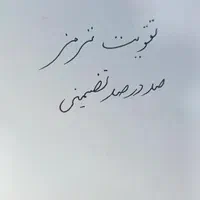 تقویت ترمز
صد در صد تضمینی